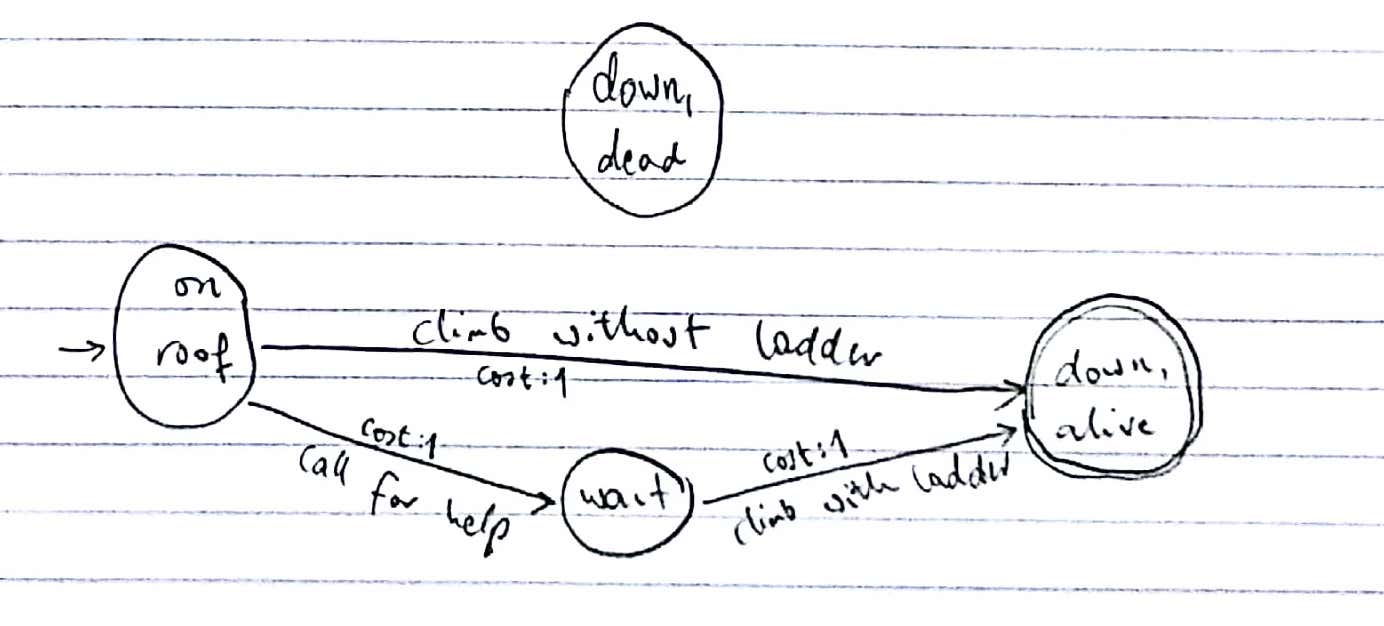 down,
dead
on
roof
climb without ladder
cost:1
down,
alive
cost:1
call for help
wait
cost:1
climb with ladder